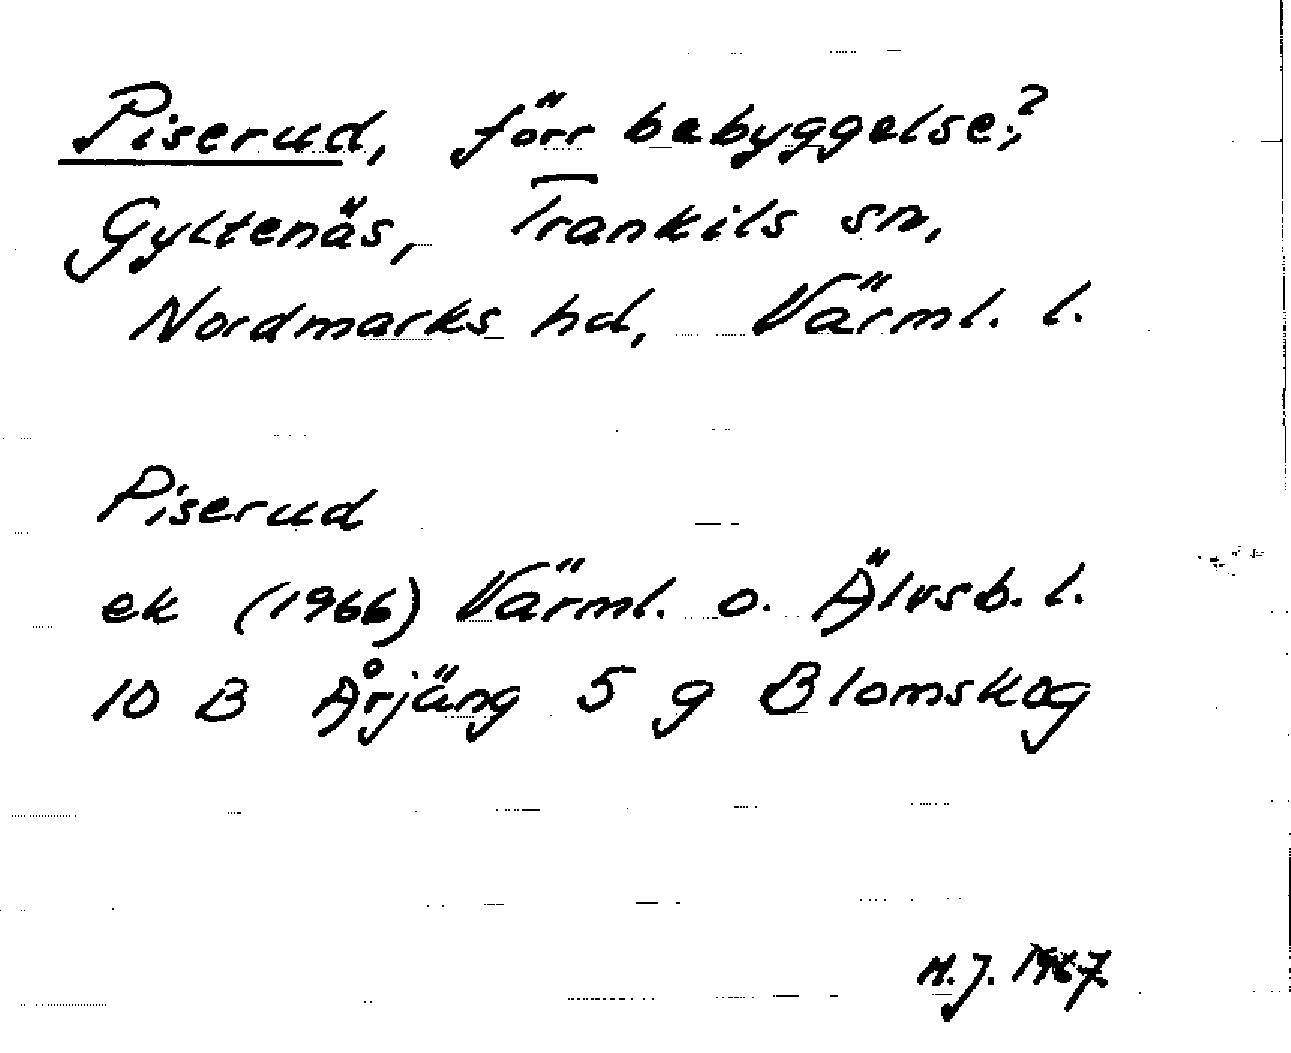 Piserud, förr bebyggelse?,
Gyltenäs, Trankils sn,
Nordmarks hd, Värml. l.
Piserud
ek (1966) Värml. o. Älvsb. l.
10 B Årjäng 5 g Blomskog
M.J. 1967